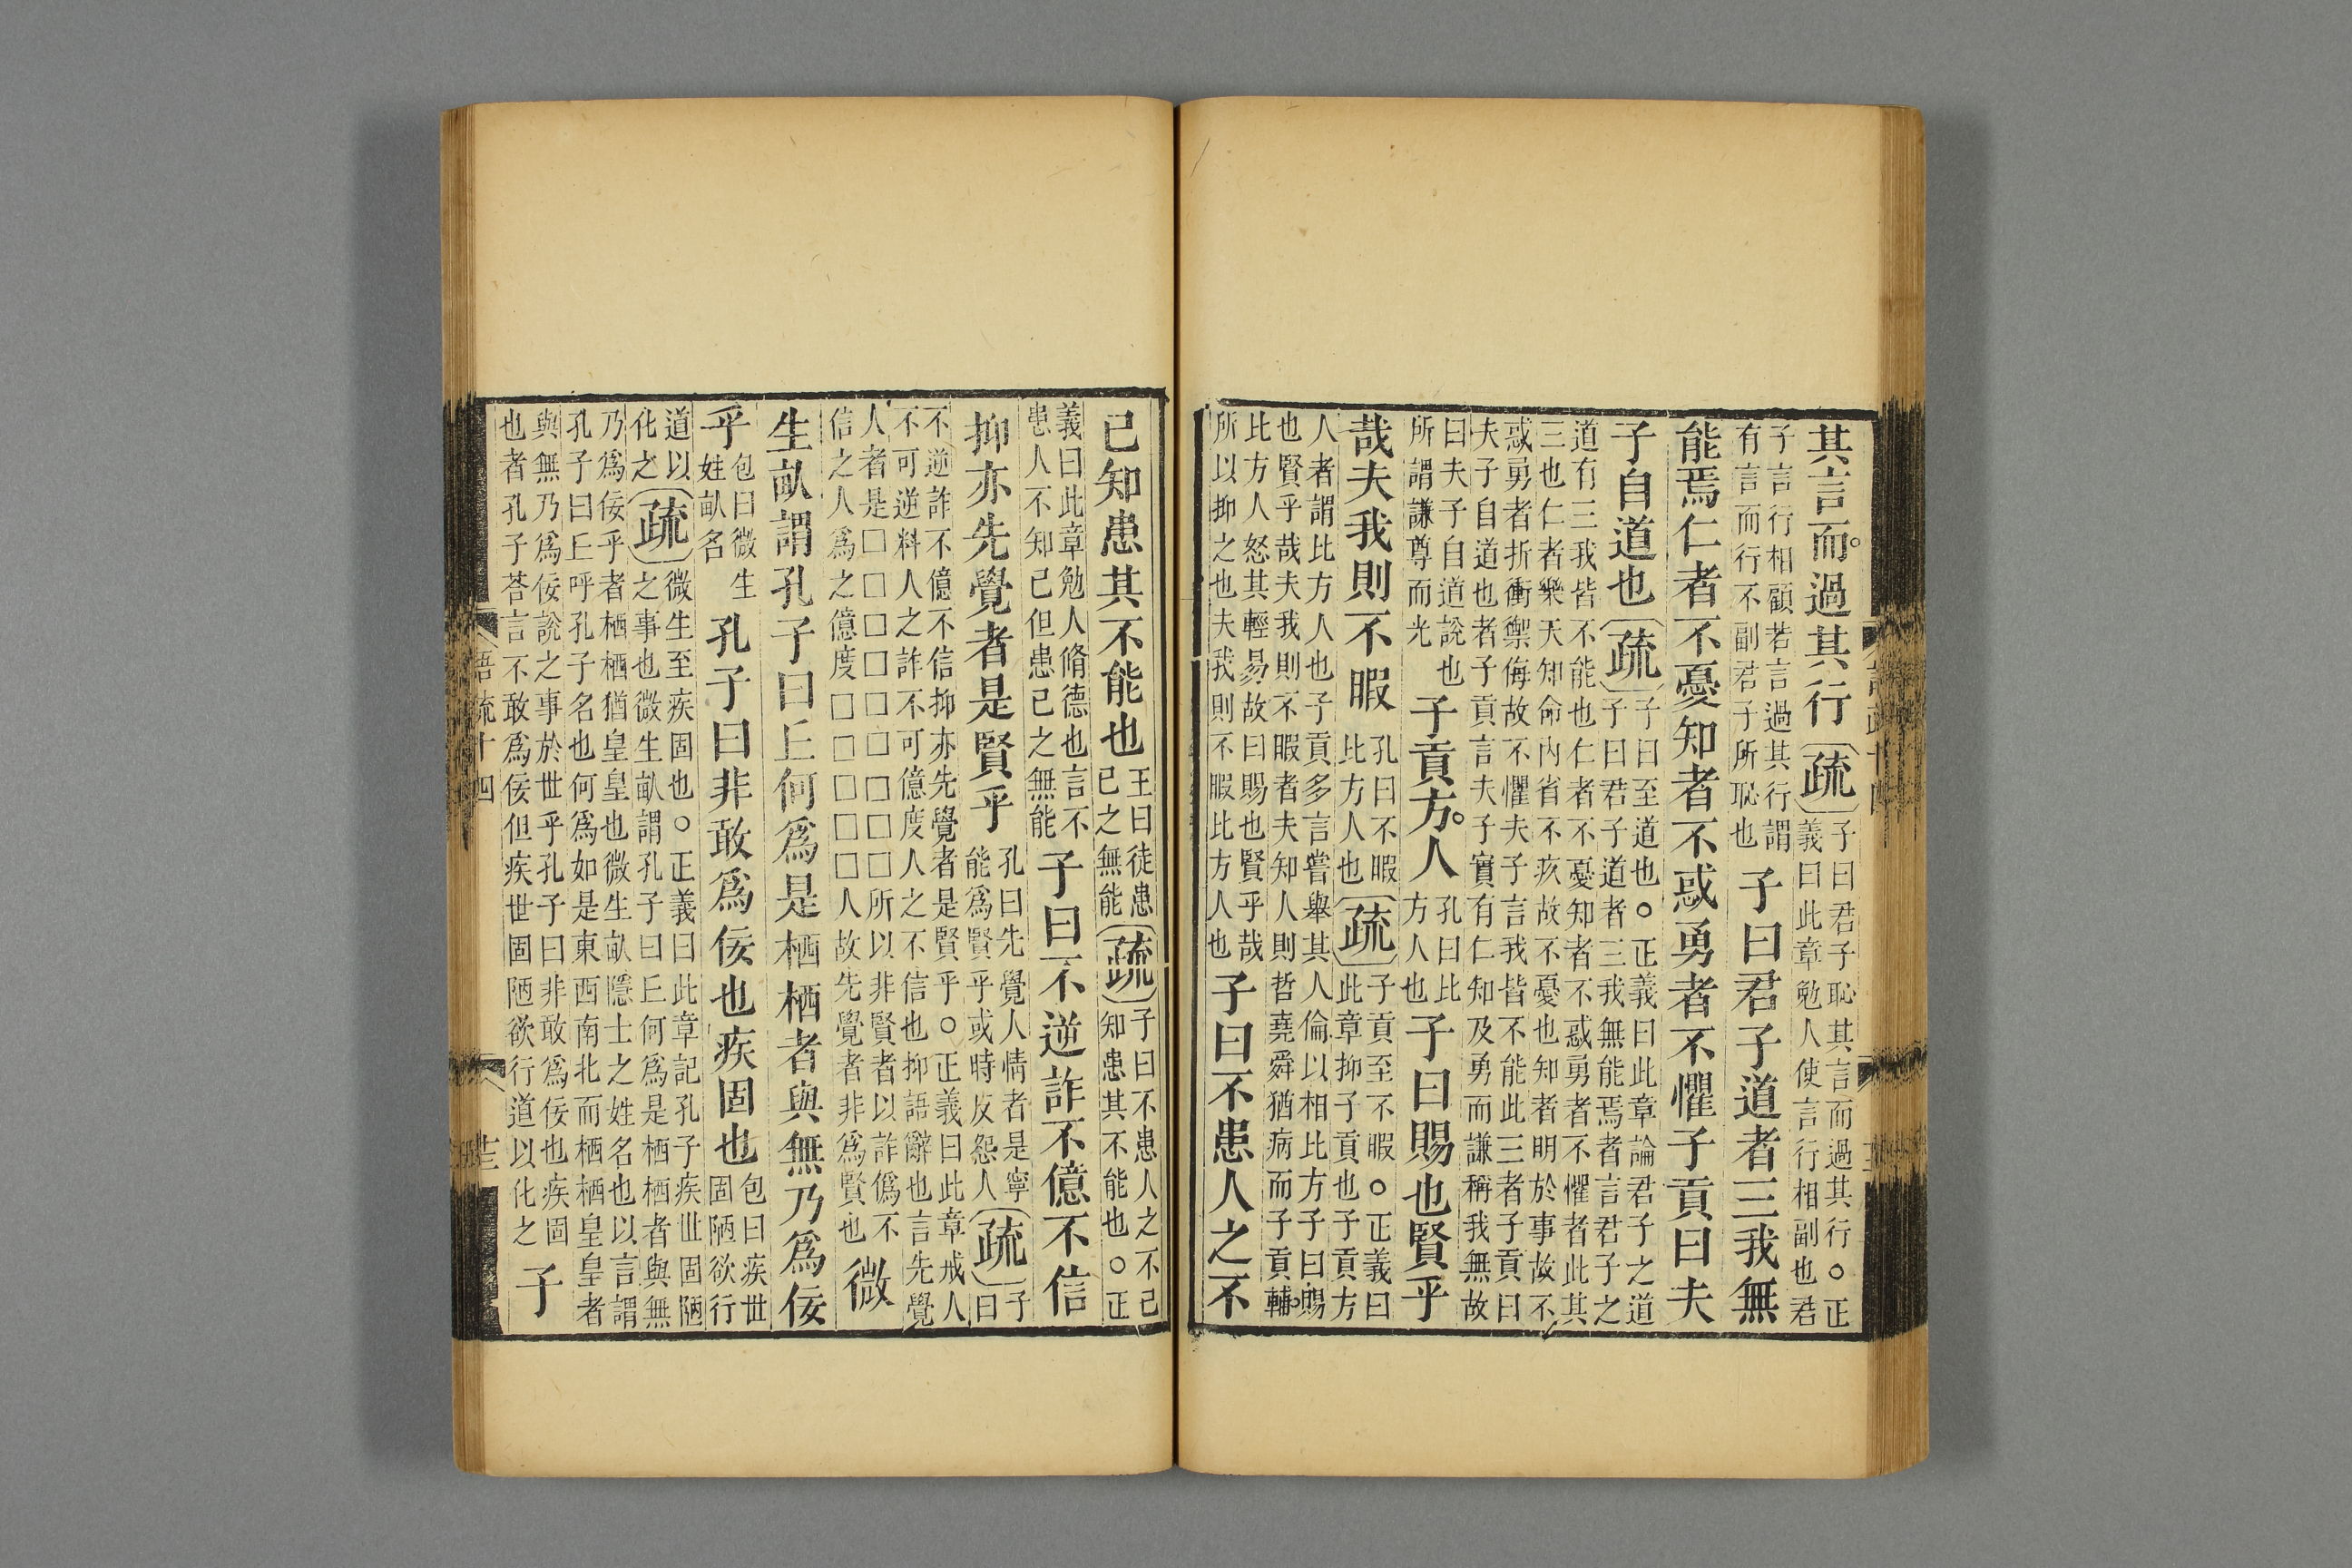 其言而過其行
疏
子曰君子恥其言而過其行○正
義曰此章勉人使言行相副也君
子言行相顧若言過其行謂
有言而行不副君子所恥也
子曰君子道者三我無
能焉仁者不憂知者不惑勇者不懼子貢曰夫
子自道也
疏
子曰至道也○正義曰此章論君子之道
子曰君子道者三我無能焉者言君子之
道有三我皆不能也仁者不憂知者不惑勇者不懼者此其
三也仁者樂天知命內省不疚故不憂也知者明於事故不
惑勇者折衝禦侮故不懼夫子言我皆不能此三者子貢曰
夫子自道也者子貢言夫子實有仁知及勇而謙稱我無故
曰夫子自道說也
所謂謙尊而光
子貢方人
孔曰比
方人也
子曰賜也賢乎
哉夫我則不暇
孔曰不暇
比方人也
疏
子貢至不暇○正義曰
此章抑子貢也子貢方
人者謂比方人也子貢多言嘗舉其人倫以相比方子曰賜
也賢乎哉夫我則不暇者夫知人則哲堯舜猶病而子貢輔
比方人怒其輕易故曰賜也賢乎哉
所以抑之也夫我則不暇比方人也
子曰不患人之不
己知患其不能也
王曰徒患
己之無能
疏
子曰不患人之不己
知患其不能也○正
義曰此章勉人脩德也言不
患人不知己但患己之無能
子曰不逆詐不億不信
抑亦先覺者是賢乎
孔曰先覺人情者是寧
能為賢乎或時反怨人
疏
子
曰
不逆詐不億不信抑亦先覺者是賢乎○正義曰此章戒人
不可逆料人之詐不可億度人之不信也抑語辭也言先覺
人者是□□□□□□□所以非賢者以詐偽不
信之人為之億度□□□□□人故先覺者非為賢也
微
生畝謂孔子曰丘何為是栖栖者與無乃為佞
乎
包曰微生
姓畝名
孔子曰非敢為佞也疾固也
包曰疾世
固陋欲行
道以
化之
疏
微生至疾固也○正義曰此章記孔子疾世固陋
之事也微生畝謂孔子曰丘何為是栖栖者與無
乃為佞乎者栖栖猶皇皇也微生畝隱士之姓名也以言謂
孔子曰丘呼孔子名也何為如是東西南北而栖栖皇皇者
與無乃為佞說之事於世乎孔子曰非敢為佞也疾固
也者孔子荅言不敢為佞但疾世固陋欲行道以化之
子
語疏十四